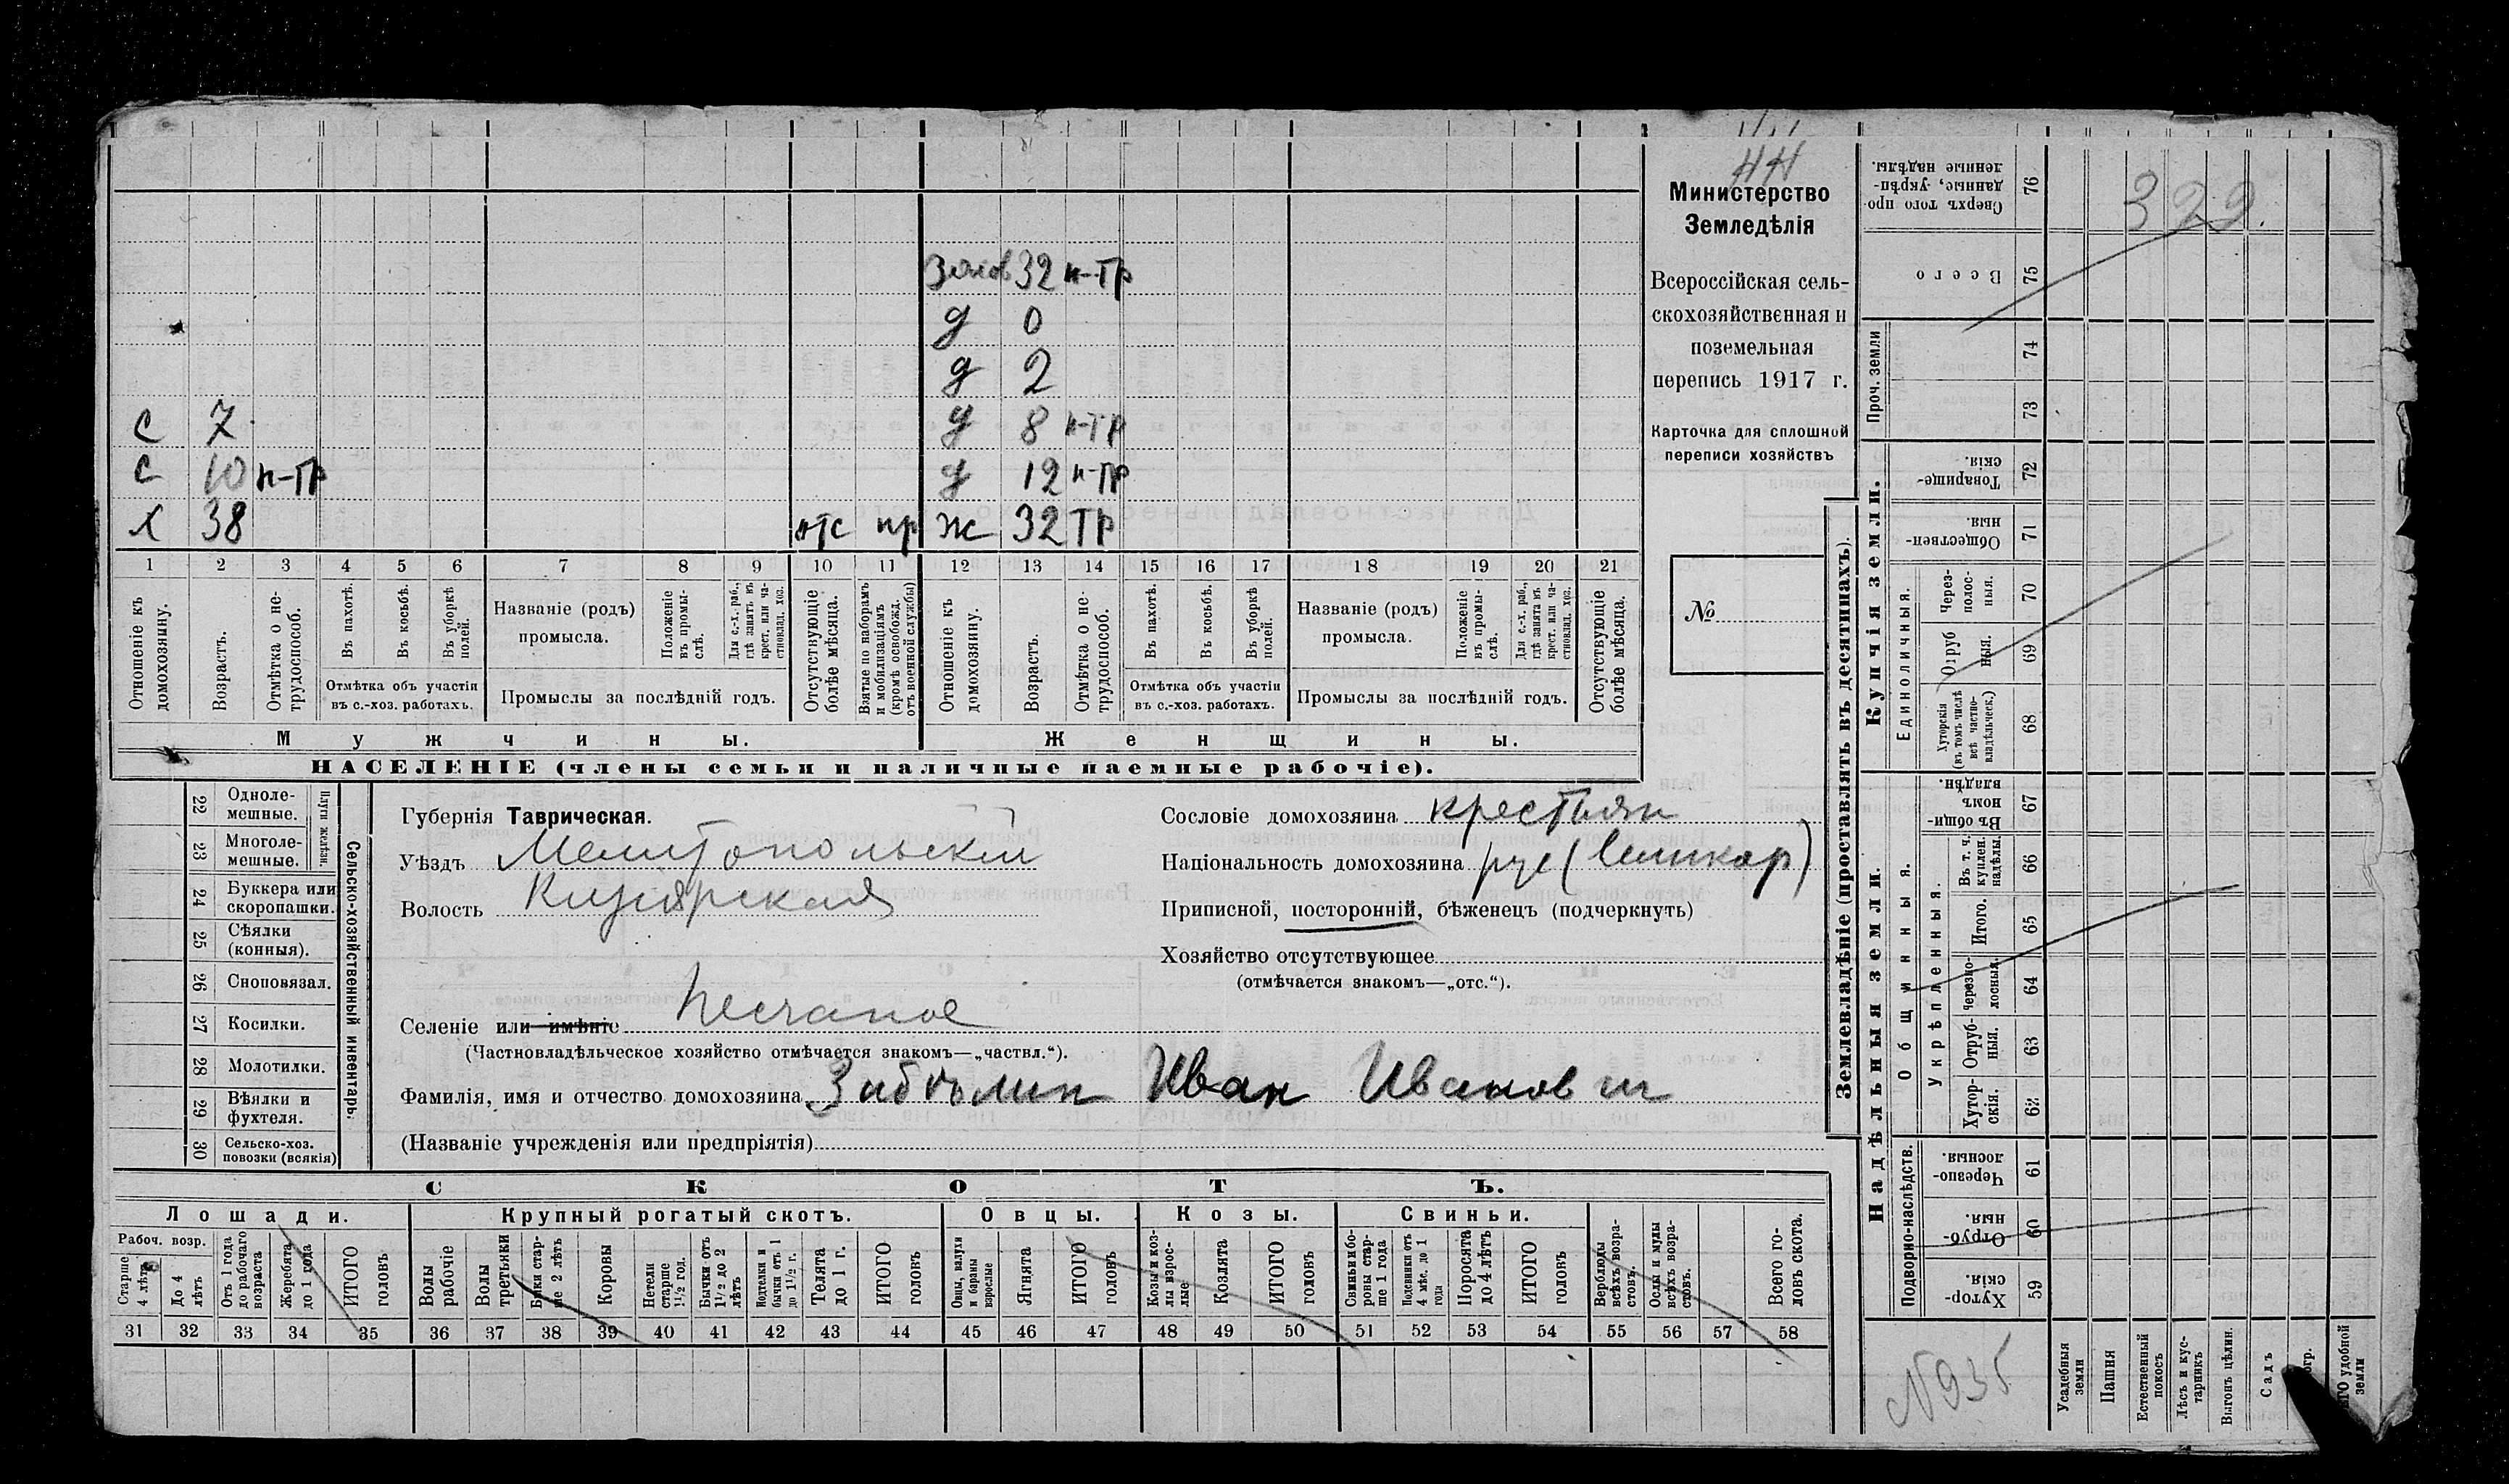 НН
Министерство
Земледѣлія
Всероссійская сель-
скохозяйственная и
поземельная
перепись 1917 г.
Карточка для сплошной
переписи хозяйствъ
№
32 н-тр
д 0
д 2
с 7 д 8 н-тр
с 10 н-тр д 12 н-тр
х 38 отс пр ж 32 тр
1 2 3 4 5 6 7 8 9 10 11 12 13 14 15 16 17 18 19 20 21
Отношеніе къ домохозяину.
Возрастъ.
Отмѣтка о не-трудоспособ.
Въ пахотѣ.
Въ косьбѣ.
Въ уборкѣ полей.
Отмѣтка объ участіи
въ с.-хоз. работахъ.
Названіе (родъ)
промысла.
Положеніе въ промы-слѣ.
Для с.-х. раб., гдѣ занятъ въ крест. или ча-стновлад. хоз.
Промыслы за послѣдній годъ.
Отсутствующіе болѣе мѣсяца.
Взятые по наборамъ и мобилизаціямъ (кромѣ освобожд. отъ военной службы)
Отношеніе къ домохозяину.
Возрастъ.
Отмѣтка о не-трудоспособ.
Въ пахотѣ.
Въ косьбѣ.
Въ уборкѣ полей.
Отмѣтка объ участіи
въ с.-хоз. работахъ.
Названіе (родъ)
промысла.
Положеніе въ промы-слѣ.
Для с.-х. раб., гдѣ занятъ въ крест. или ча-стновлад. хоз.
Промыслы за послѣдній годъ.
Отсутствующіе болѣе мѣсяца.
Мужчины. Женщины.
НАСЕЛЕНІЕ (члены семьи и наличные наемные рабочіе).
Сельско-хозяйственный инвентарь.
Плуги желѣзн.
22 Одноле-мешные.
23 Многоле-мешные.
24 Буккера или скоропашки.
25 Сѣялки (конныя).
26 Сноповязал.
27 Косилки.
28 Молотилки.
29 Вѣялки и фухтеля.
30 Сельско-хоз. повозки (всякія)
Губернія Таврическая.
Уѣздъ Мелитопольскій
Волость Кизіярская
Селеніе или имѣніе Песчаное
(Частновладѣльческое хозяйство отмѣчается знакомъ—„частвл.“).
Фамилія, имя и отчество домохозяина Иван Иванович
(Названіе учрежденія или предпріятія)
Сословіе домохозяина крестьян
Національность домохозяина рус (великор)
Приписной, посторонній, бѣженецъ (подчеркнуть)
Хозяйство отсутствующее
(отмѣчается знакомъ—„отс.“).
СКОТЪ.
Лошади. Крупный рогатый скотъ. Овцы. Козы. Свиньи.
Рабоч. возр.
Старше 4 лѣтъ
До 4 лѣтъ
Отъ 1 года до рабочаго возраста
Жеребята до 1 года
ИТОГО головъ
Волы рабочіе
Волы третьяки
Быки стар-ше 2 лѣтъ
Коровы
Нетели старше 1½ год.
Бычки отъ 1½ до 2 лѣтъ
Подтелки и бычки отъ 1 до 1½ г.
Телята до 1 г.
ИТОГО головъ
Овцы, валухи и бараны взрослые
Ягнята
ИТОГО головъ
Козы и коз-лы взрос-лые
Козлята
ИТОГО головъ
Свиньи и бо-ровы стар-ше 1 года
Подсвинки отъ 4 мѣс. до 1 года
Поросята до 4 лѣтъ
ИТОГО головъ
Верблюды всѣхъ возра-стовъ.
Ослы и мулы всѣхъ возра-стовъ.
Всего го-ловъ скота.
31 32 33 34 35 36 37 38 39 40 41 42 43 44 45 46 47 48 49 50 51 52 53 54 55 56 57 58
Землевладѣніе (проставлять въ десятинахъ).
Сверхъ того про-данные, укрѣп-ленные надѣлы. 76
322.
Всего 75
Проч. земли
74
73
Купчія земли.
Товарище-скія. 72
Обществен-ныя. 71
Единоличныя.
Через-полос-ныя. 70
Отруб ныя. 69
Хуторскія (въ томъ числѣ всѣ частно-владѣльческ.) 68
Надѣльныя земли.
Общинныя.
Въ общи-номъ владѣн. 67
Укрѣпленныя.
Въ т. ч. куплен. надѣлы 66
Итого. 65
Черезпо-лосныя. 64
Отруб-ныя. 63
Хутор-скія. 62
Подворно-наслѣдств.
Черезпо-лосныя. 61
Отруб-ныя. 60
Хутор-скія. 59
Усадебныя земли
Пашня
Естественный покосъ
Лѣсъ и кус-тарникъ
Выгонъ цѣлин.
Садъ
огр.
ГО удобной земли
N935